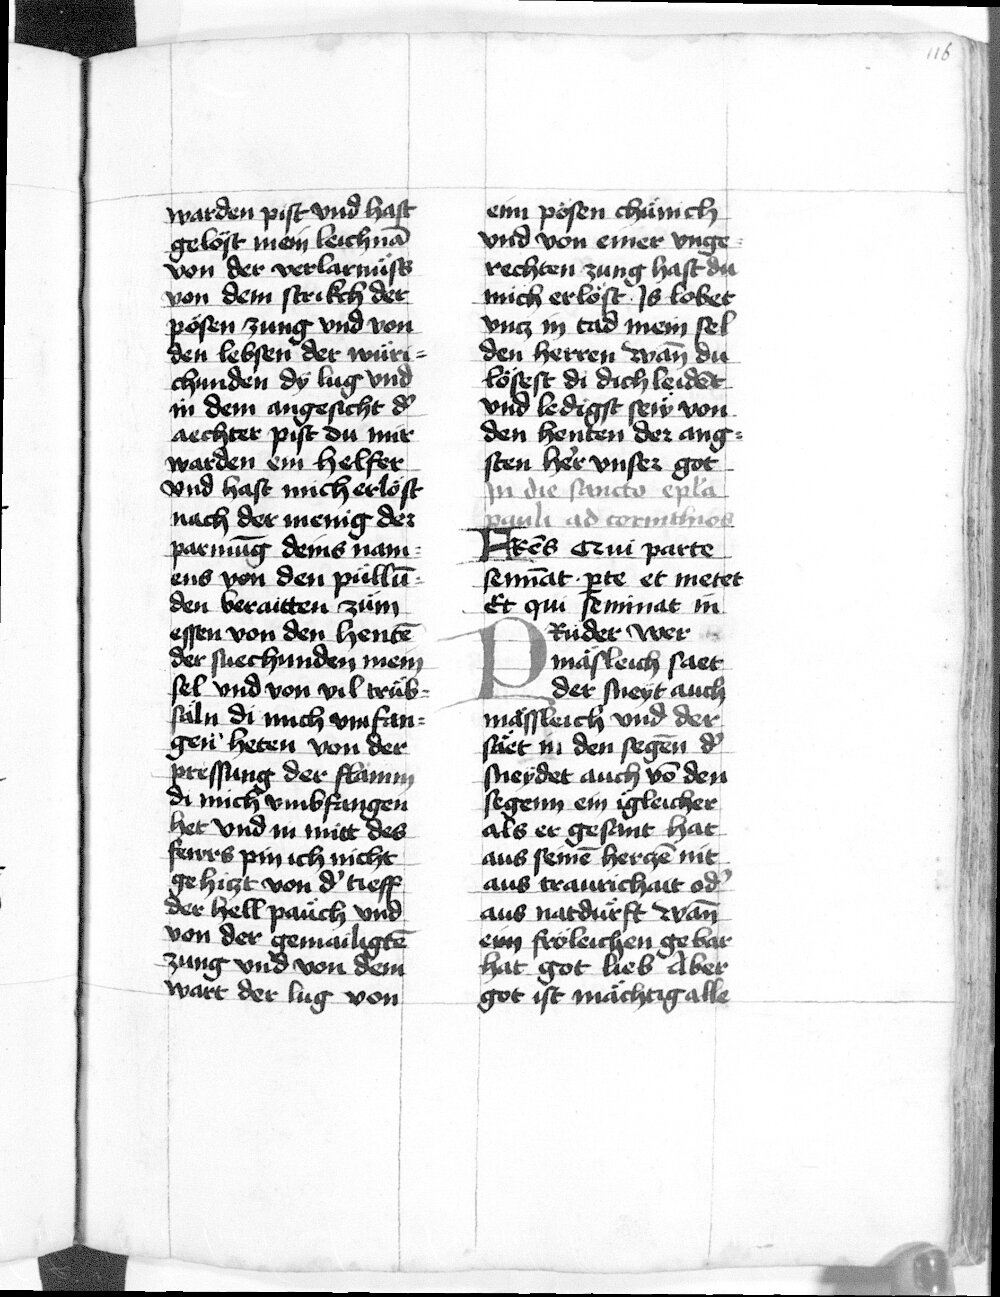 116
warden pist vnd hast
gelöst mein leichnā
von der verlarnüss
von dem strikch der
pösen zung vnd von
den lebsen der würi-
chunden dy lug vnd
in dem angesicht d'
aechter pist du mir
warden ein helfer
vnd hast mich erlöst
nach der menig der
parmūg deins nam-
ens von den püllū-
den beraitten züm
essen von den hentē
der suechunden mein
sel vnd von vil trüb-
säln di mich vmfan-
gen heten von der
pressung der flamm
di mich vmbfangen
het vnd in mitt des
fewrs pin ich nicht
gehiczt von d' tieff
der hell pauch vnd
von der gemailigtē
zung vnd von dem
wart der lug von
eim pösen chünich
vnd von einer vnge-
rechten zung hast du
mich erlöst Is lobet
vncz in tad mein sel
den herren wañ du
lösest di dich leident
vnd ledigst sew von
den henten der ang-
sten her vnser got
In die sancto ep̄la
pauli ad corinthios
FRēs Qui parce
semīat p̱ce et metet
Et qui seminat in
PRüder wer
mäsleich saet
der sneyt auch
mässleich vnd der
säet in den segen d'
sneydet auch vō den
segenn ein igleicher
als er gesant hat
aus seinē herczē nit
aus traurichait od'
aus natdürft wañ
eim fröleichen gebar
hat got lieb Aber
got ist mächtig alle